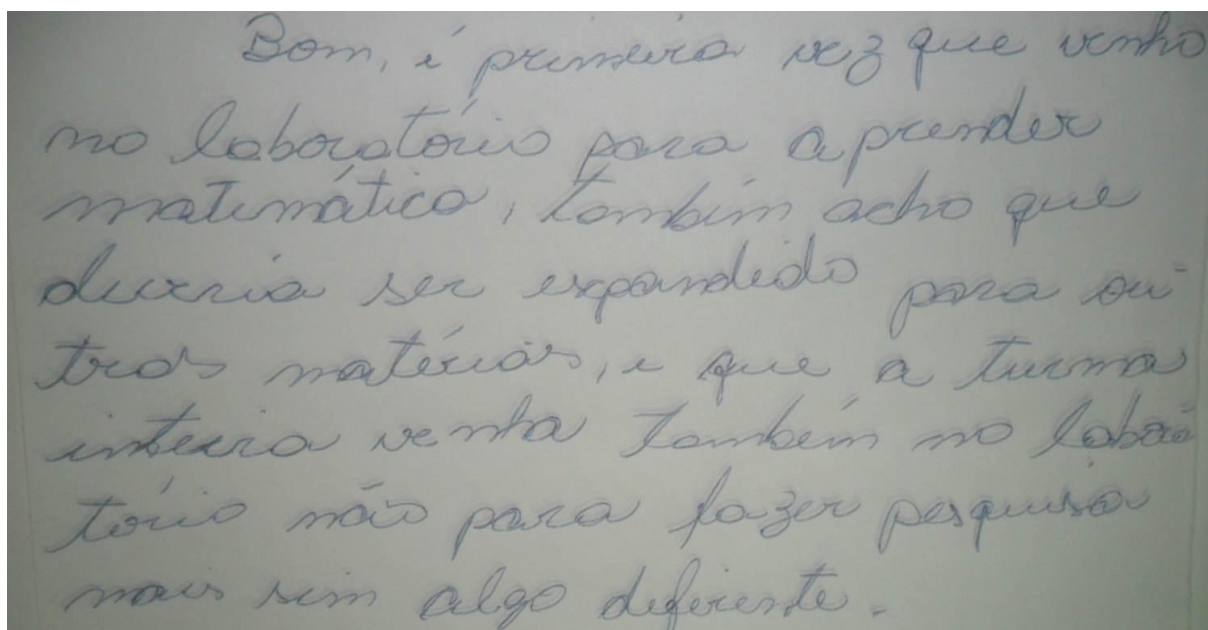 Bom, é primeira vez que venho
no laboratório para aprender
matemática, também acho que
deveria ser expandido para ou-
tras matérias, e que a turma
inteira venha também no labora-
tório não para fazer pesquisa
mais sim algo diferente.